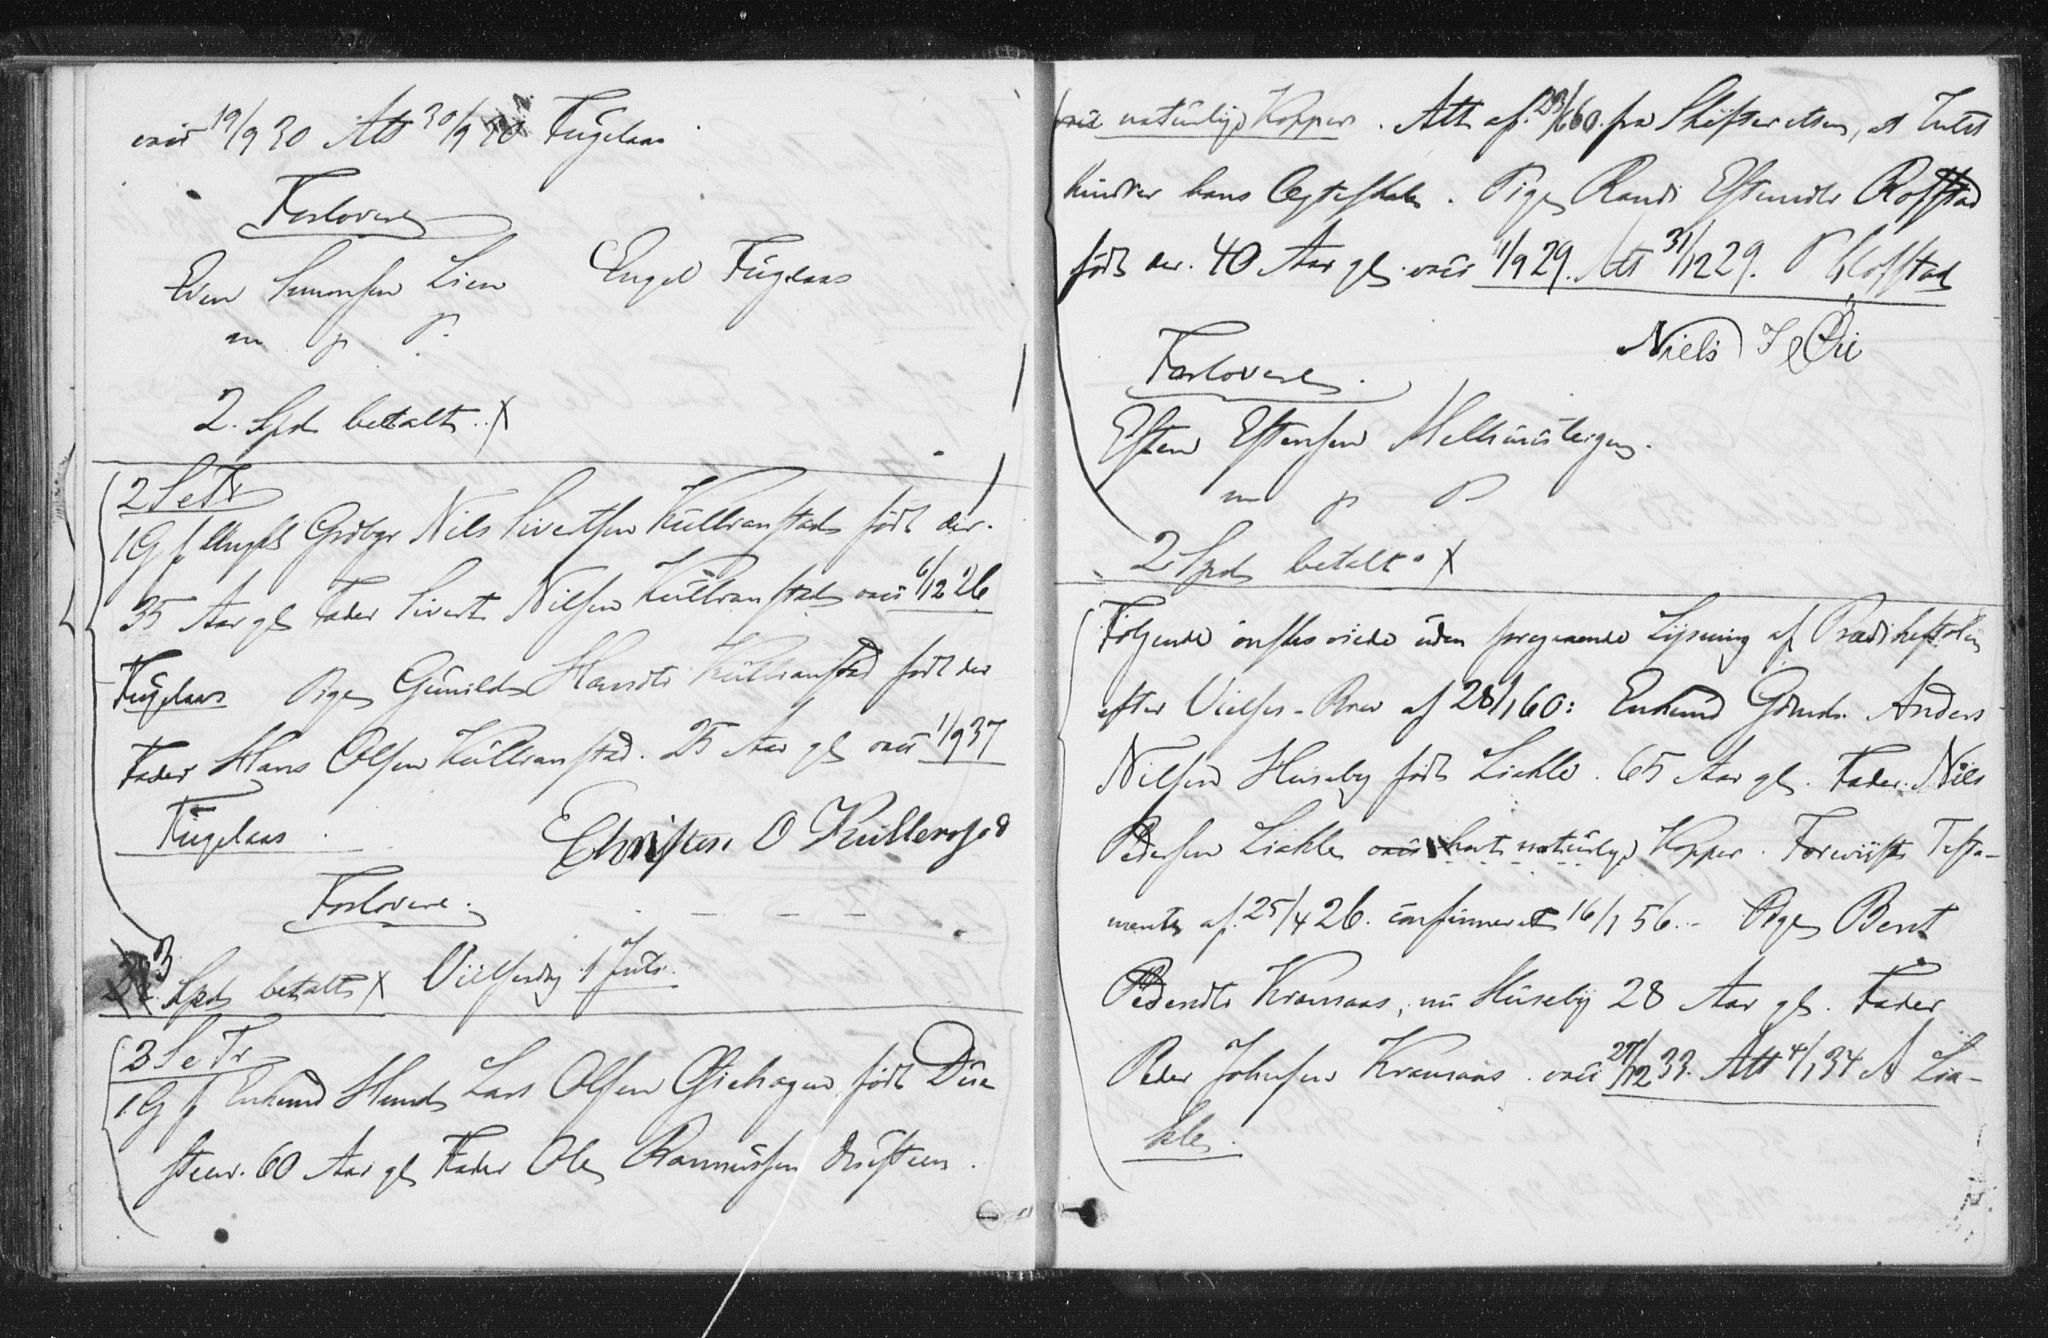 vacc 19/9 30 Att 30/9 30 Fuglaas
Forlovere
Even Simonsen Lien Engel Fuglaas
m p P.
2. Spd betalt. X
2 S e Tr
1 G f Ungkl Grdbgr Nils Sivertsen Kulbranstad født der.
35 Aar gl Fader Sivert Nilsen Kulbranstad vacc 6/12 26
Fuglaas Pige Gunild Hansdtr Kulbranstad født der
Fader Hans Olsen Kulbranstad. 25 Aar gl vacc 1/9 37
Fuglaas
Christen O Kulleropd
Forlovere.
3 Spd betalt X Vielsesdag 1 Juli.
3 S e Tr
1 G f Enkemd Lars Olsen født Due
steen. 60 Aar gl Fader Ole Rasmussen Duesteen.
havt naturlige Kopper. Att af 23/6 60 fra Skifteretten, at Intet
hindrer hans Ægteskab. Pige Randi Estensdtr Rofstad
født der. 40 Aar gl. vacc 11/9 29. Att 31/12 29. P Rofstad
Niels J Øie
Forlovere.
Esten Estensen Melhuusbergen.
m p P
2 Spd betalt. X
Følgende ønskes viede uden foregaaende Lysning af Prædikestolen
efter Vielses-Brev af 28/1 60: Enkemd Gdmd. Anders
Nilsen Huseby født Liakle. 65 Aar gl. Fader: Nils
Pedersen Liakle havt naturlige Kopper. Foreviist Testa-
mente af 25/4 26. confirmeret 16/1 56. - Pige Berit
Pedersdtr Kraasaas, nu Huseby 28 Aar gl. Fader
Peder Johnsen Kraasaas. vacc 27/12 33. Att 4/1 34 A Lia-
kle.